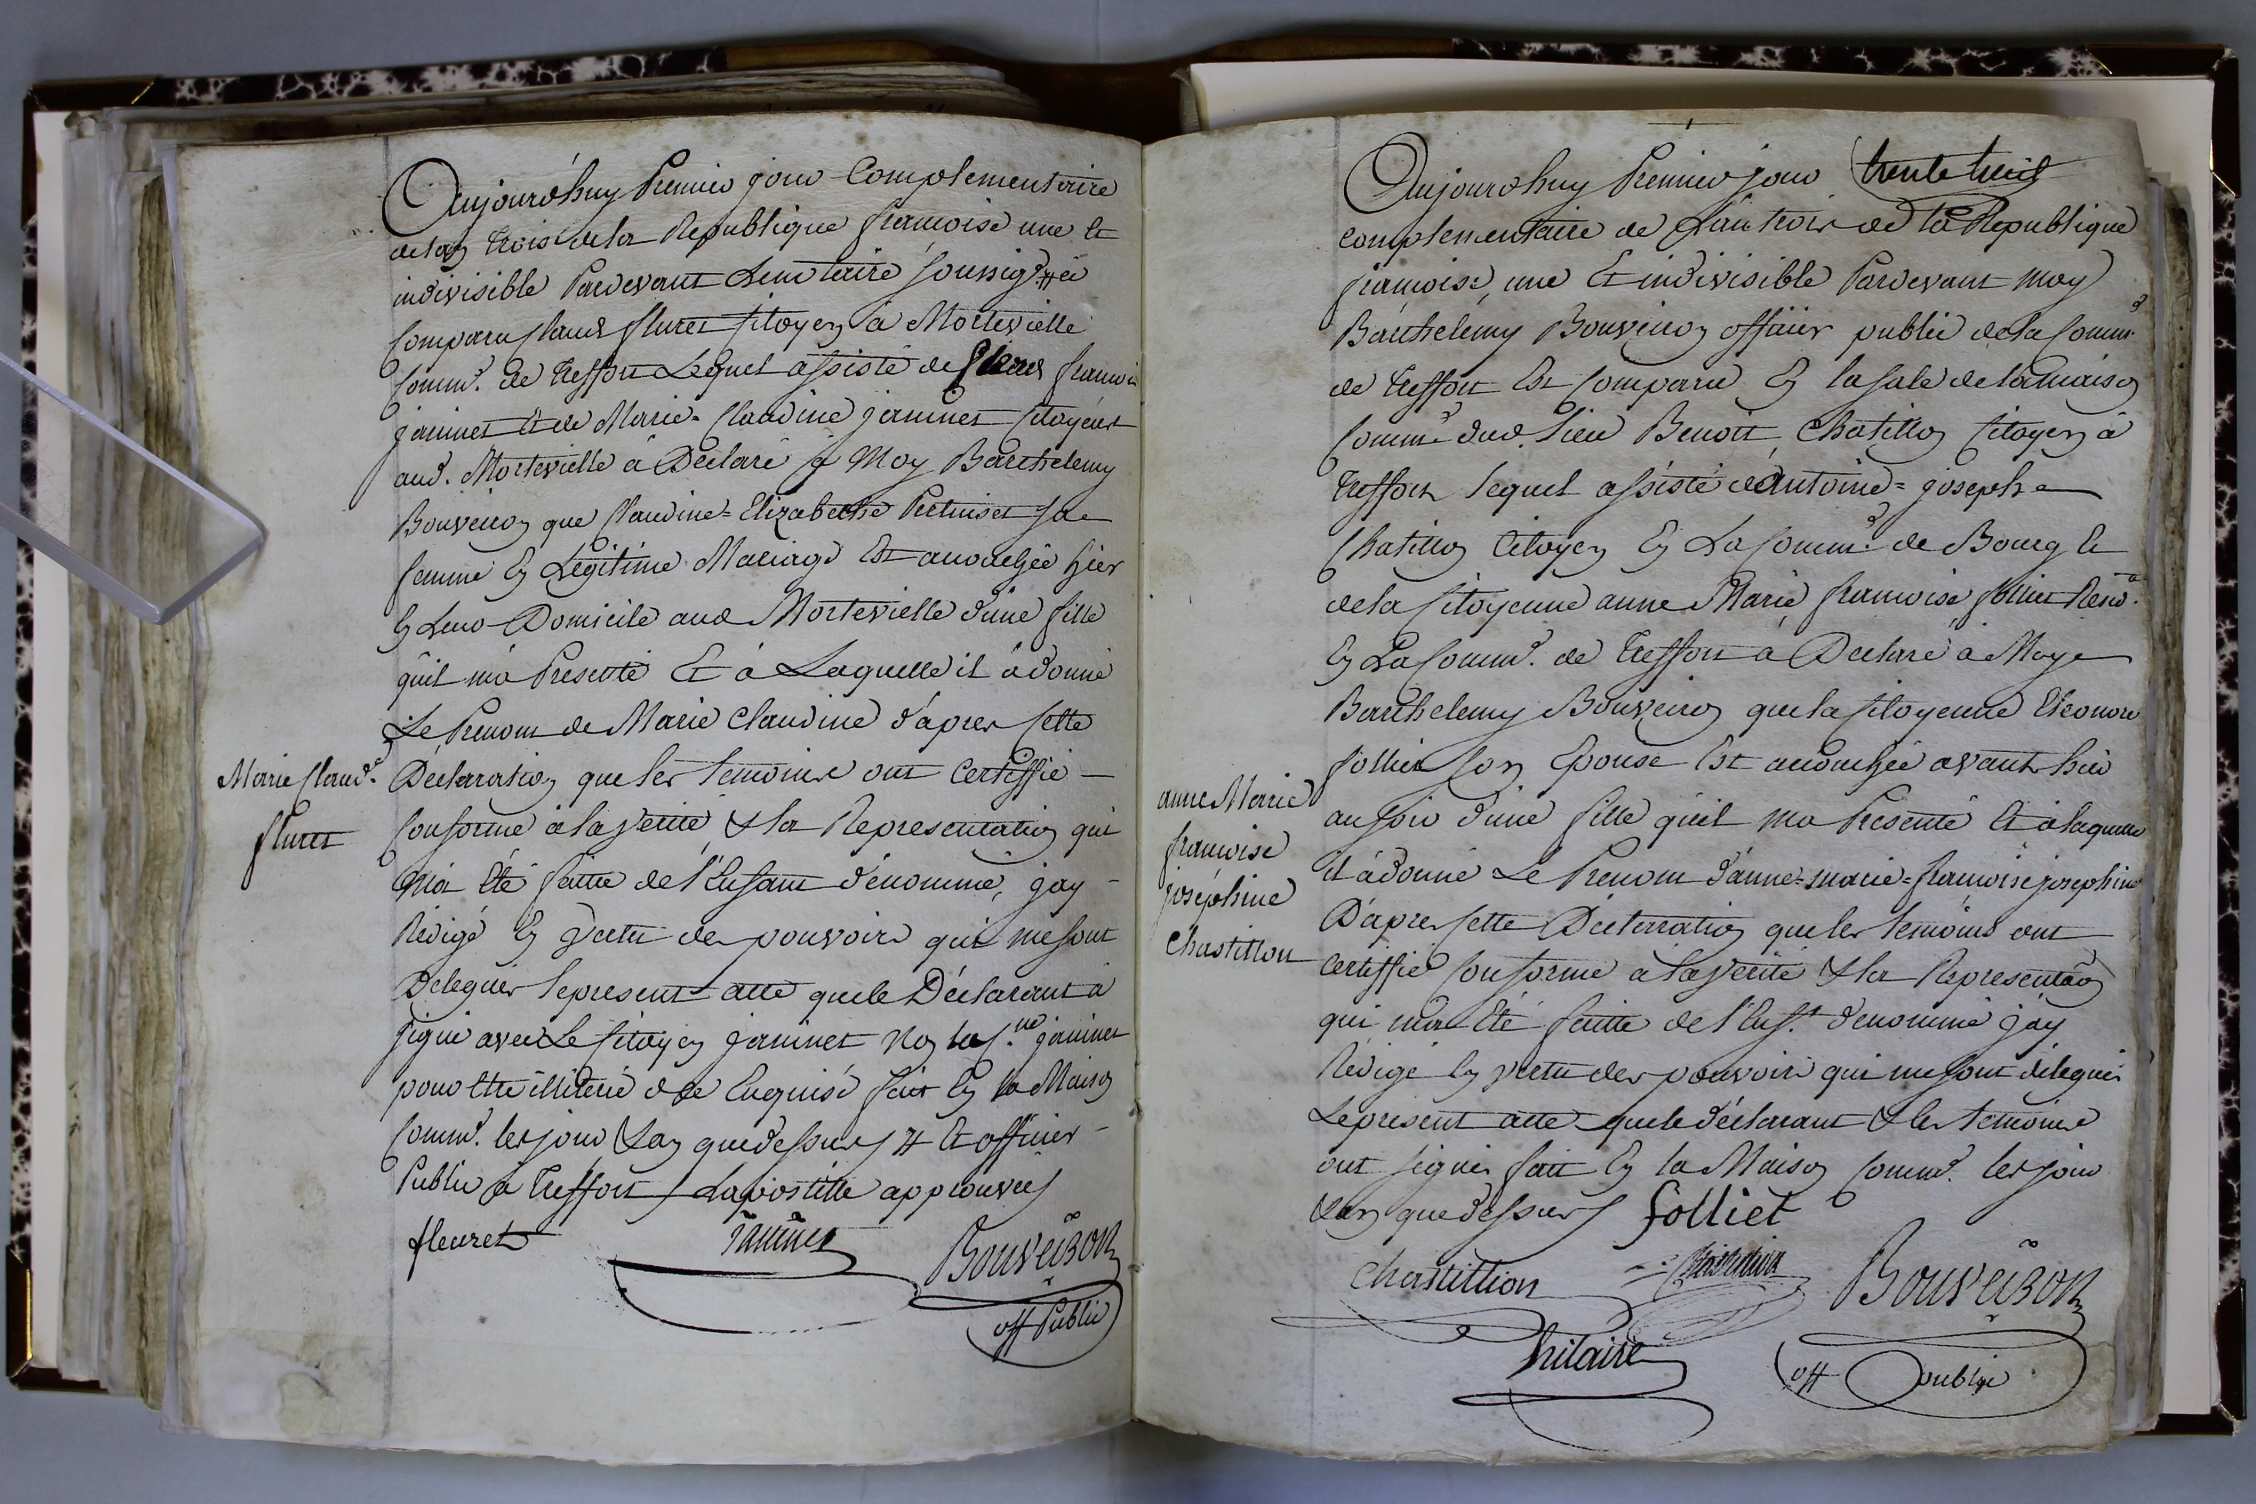 Aujourd'huy Premier jour Complementaire
de lan trois de la Republique francoise une Et
indivisible Pardevant Le notaire soussigné #
Comparu Claude fluret Citoyen à Mortevielle
Comm.e de treffort Lequel assisté de françois
janinet Et de Marie-Claudine janinet Citoyens
aud. Mortevielle à Déclaré à Moy Barthelemy
Bouveiron que Claudine-Elizabethe sa
femme En Légitime Mariage Est accouchée hier
En Leur Domicile aud Mortevielle d'une fille
quil m'a Presenté Et à Laquelle il à donné
Le Prenom de Marie Claudine d'apres Cette
Déclaration que les temoins ont Certiffié
Marie Claud.e
fluret
Conforme à la verité & la Representation qui
m'a Eté faitte de l'Enfant dénommé, jay
Rédigé En vertu des pouvoirs qui me sont
Délégués le present acte que le Déclarant à
signé avec Le Citoyen janinet Non la C.ne janinet
pour Etre illiteré de ce Enquise fait En la Maison
Comm.e les jour & an que dessus # Et officier
Public à treffort Lapostille approuvée
fleuret janinet Bouveiron
off Public
trente huit
Aujourd'huy Premier jour
complementaire de Lan trois de la Republique
francoise, une Et indivisible Pardevant Moy
Barthelemy Bouveiron officier public de la Comm.e
de treffort Est Comparu En la sale de la Maison
Comm.e dud. lieu Benoit Chatillon Citoyen à
treffort lequel assisté d'Antoine-joseph
Chatillon Citoyen En La Comm.e de Bourg Et
de la Citoyenne anne Marie francoise folliet Resid.te
En La Comm.e de treffort à Déclaré à Moy
Barthelemy Bouveiron que la Citoyenne Eleonore
folliet son Epouse Est accouchée avant hier
au soir d'une fille quil ma Présenté Et à laquelle
anne Marie
francoise
joséphine
Chastillon
il à donné Le Prenom d'anne-marie-francoise josephine
D'apres Cette Déclaration que les temoins ont
certiffié Conforme à la verité & la Representaon
qui m'a Eté faitte de l'Enf.t dénommé jay
Rédigé En vertu des pouvoirs qui me sont délégués
Le présent acte que le déclarant & les temoins
ont signés fait En la Maison Comm.e les jour
& an que dessus folliet
Chastillion Bouveiron
hilaire off public